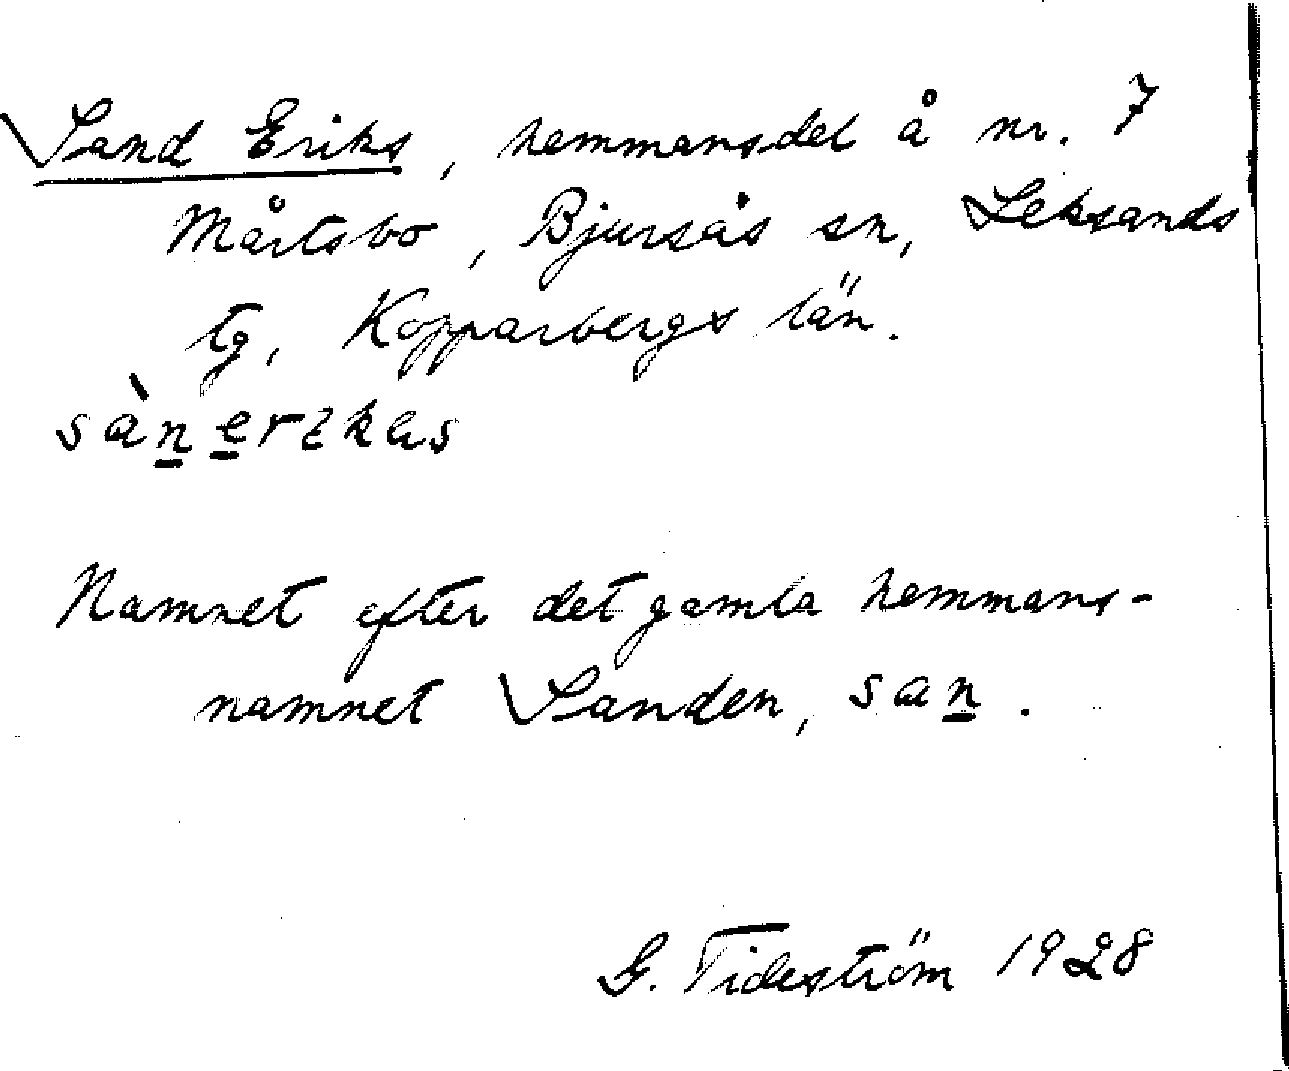 Sand Eriks, hemmansdel å nr. 7
Mårtsbo, Bjursås sn, Leksands
tg, Kopparbergs län.
Namnet efter det gamla hemmans-
namnet Sanden, san.
G. Tideström 1928